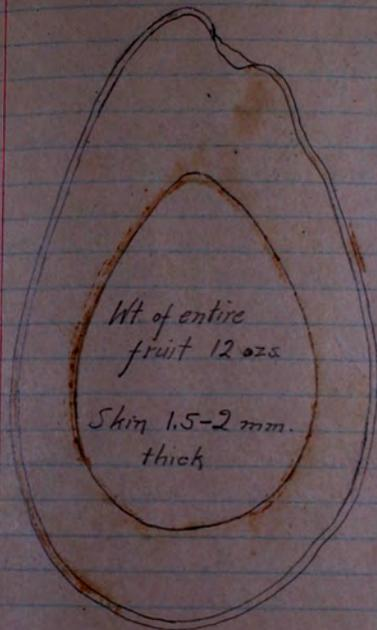 Wt. of entire
fruit 12 ozs
Skin 1.5-2 mm.
thick